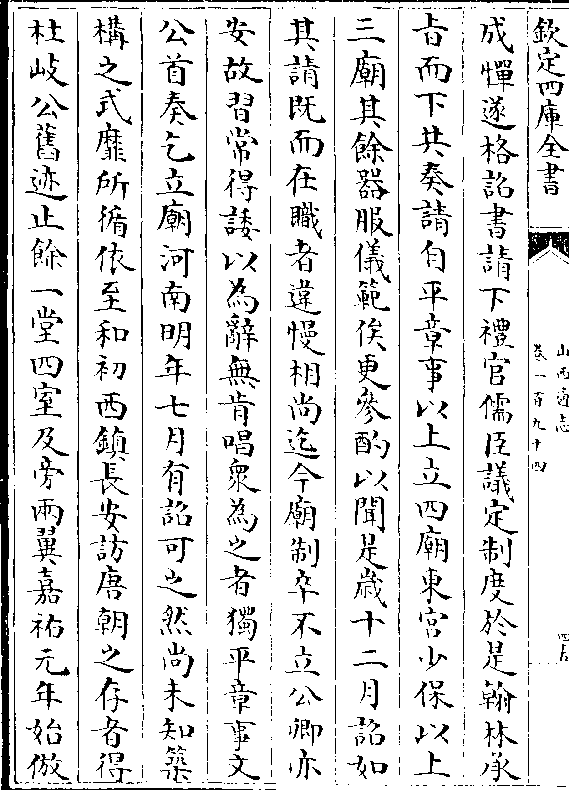 欽定四庫全書
山西通志
卷一百九十四
四五
成憚遂格詔書請下禮官儒臣議定制度於是翰林承
旨而下共奏請自平章事以上立四廟東宮少保以上
三廟其餘器服儀範俟更參酌以聞是歲十二月詔如
其請既而在職者違慢相尚迄今廟制卒不立公卿亦
安故習常得諉以為辭無肯唱衆為之者獨平章事文
公首奏乞立廟河南明年七月有詔可之然尚未知築
構之式靡所循依至和初西鎮長安訪唐朝之存者得
杜岐公舊迹止餘一堂四室及旁兩翼嘉祐元年始倣